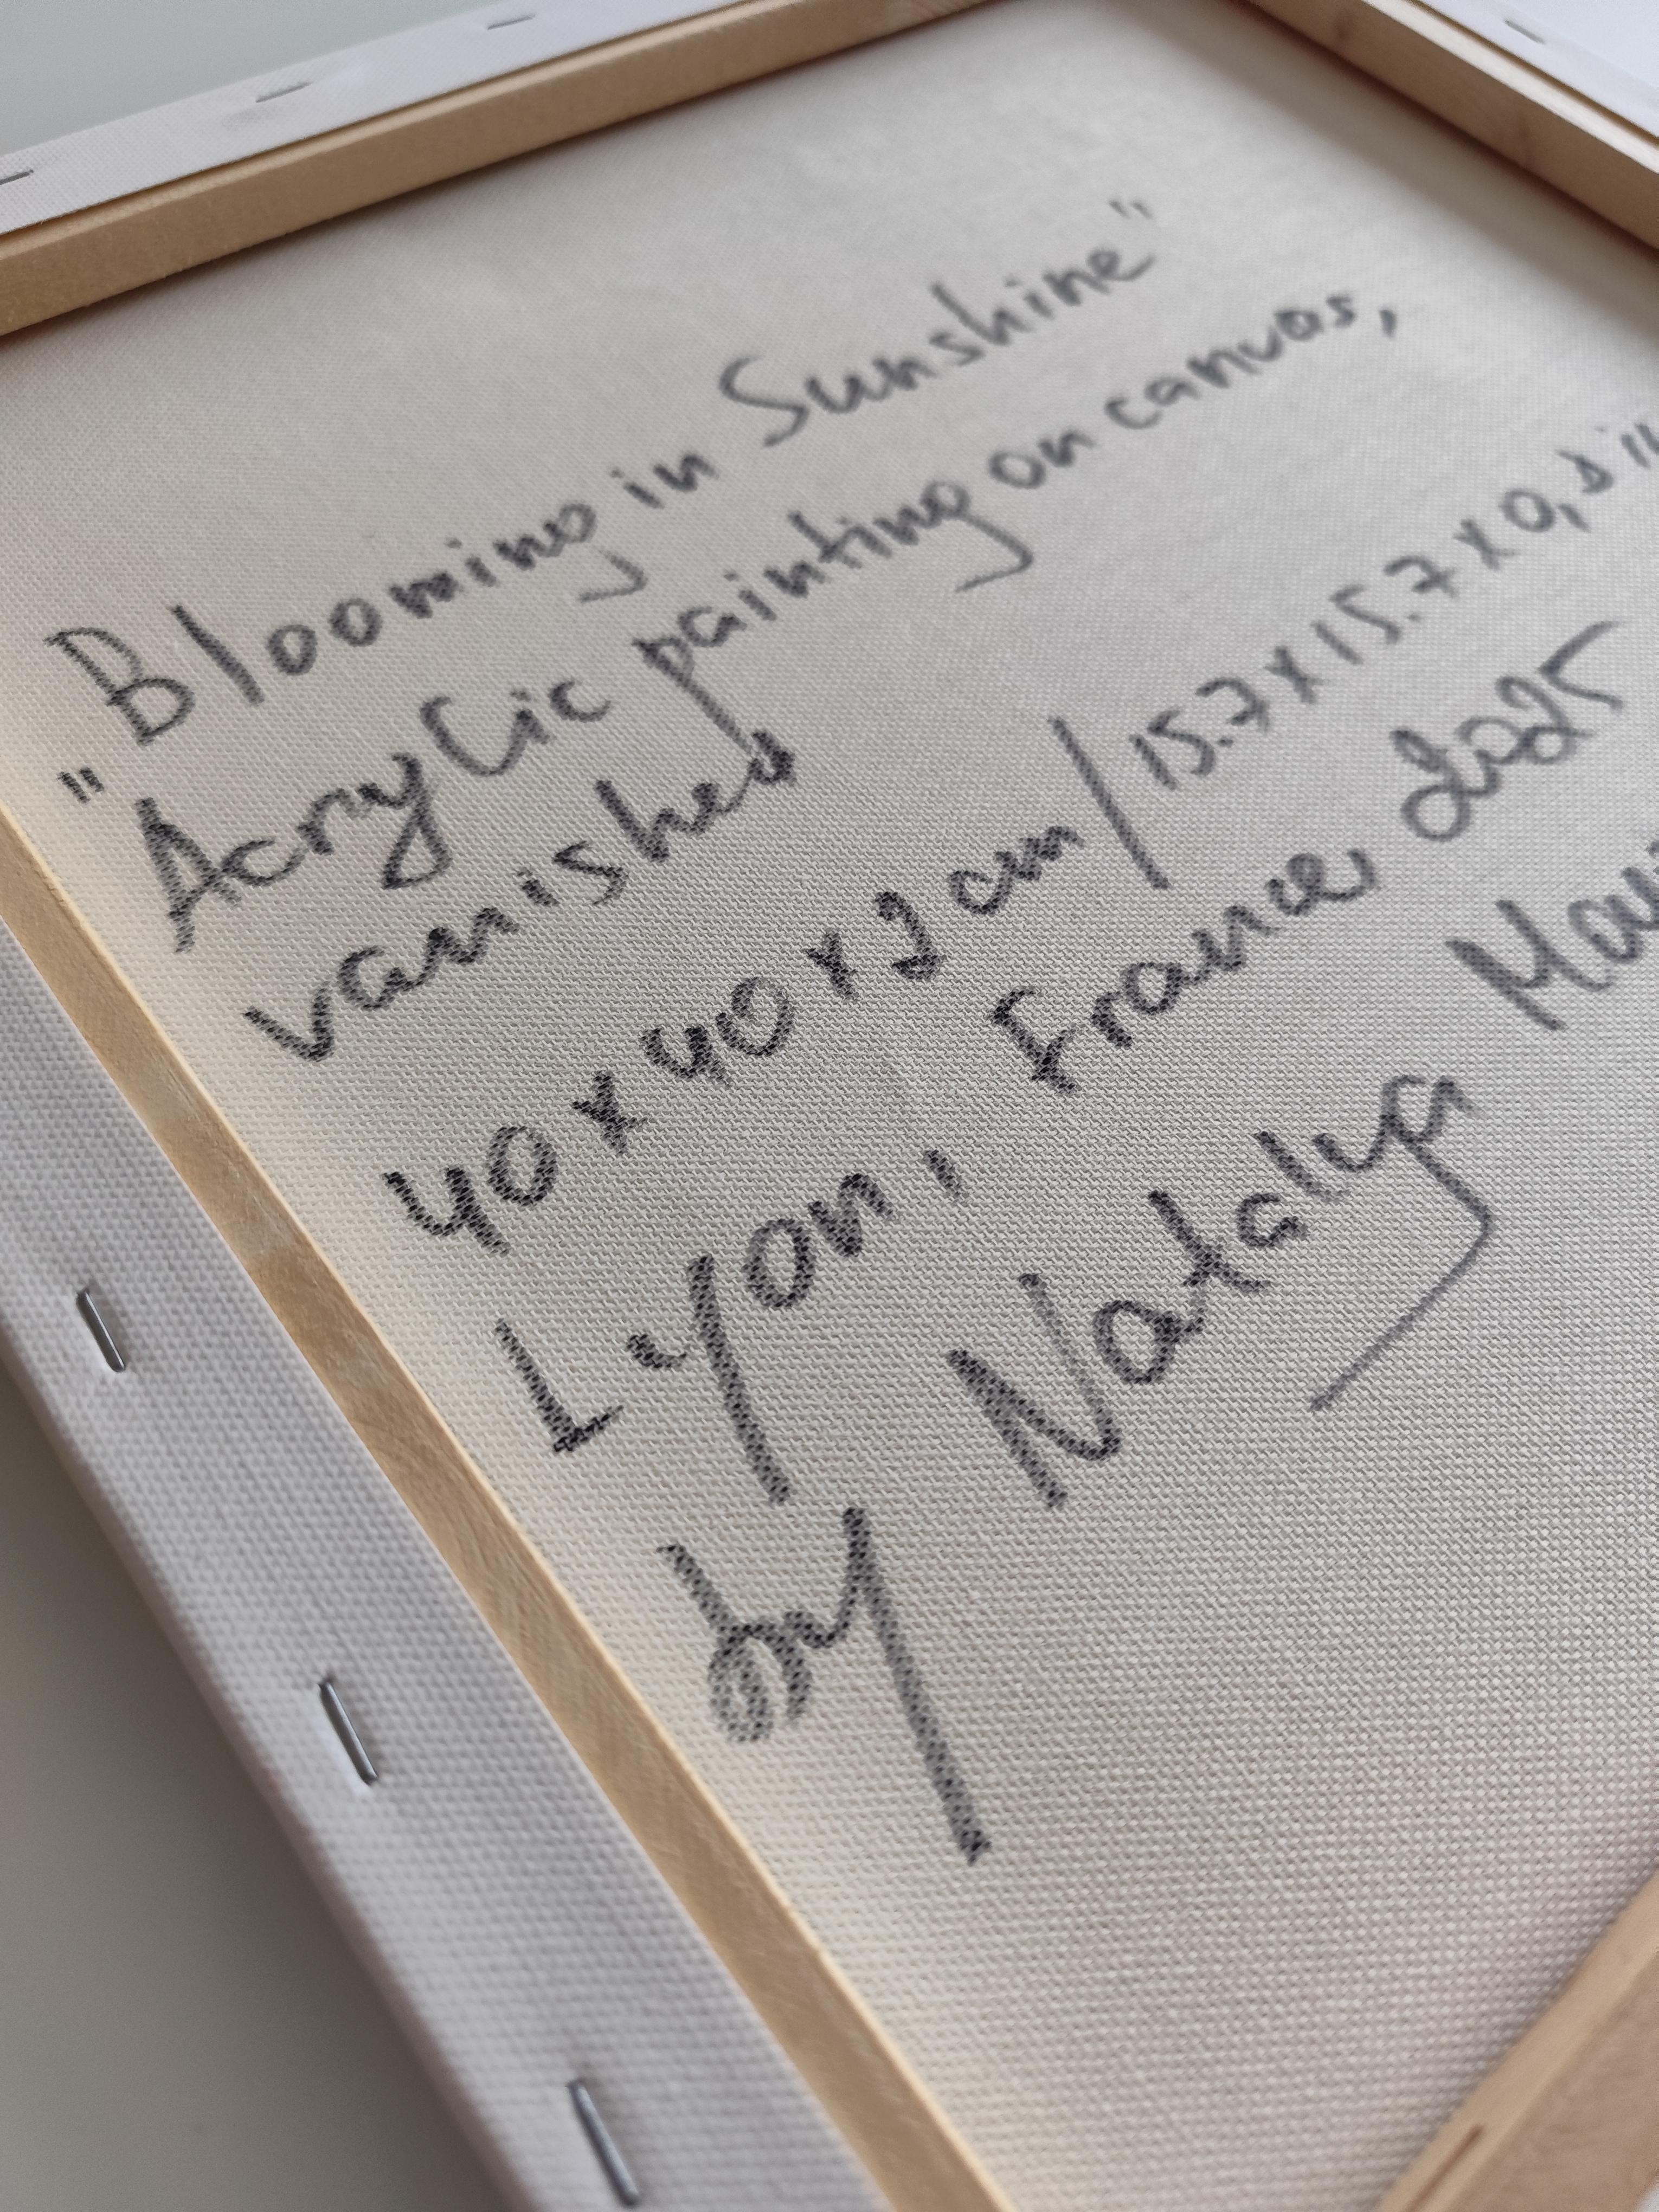 "Blooming in Sunshine"
Acrylic painting on canvas,
vanished
40x40x2cm/15.7x15.7x0,8in
Lyon, France, 2025
by Natalya